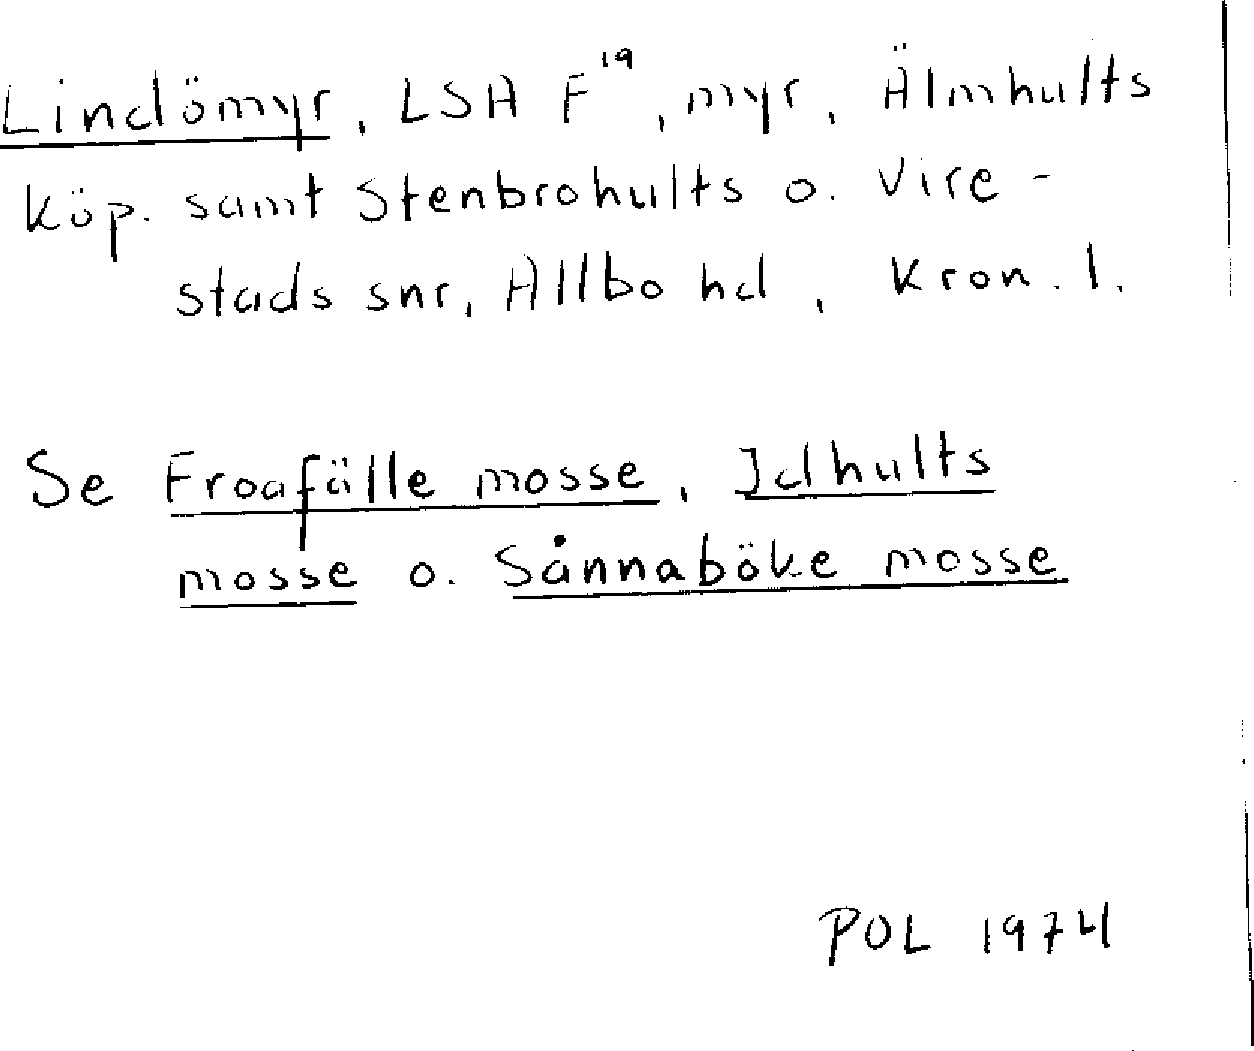 Lindömyr, LSA F¹⁹, myr, Älmhults
köp. samt Stenbrohults o. Vire-
stads snr, Allbo hd, Kron. l.
Se Froafälle mosse, Idhults
mosse o. Sånnaböke mosse
POL 1974